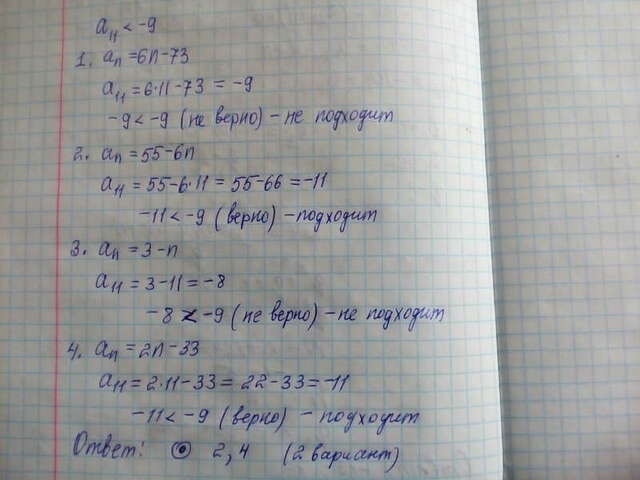 a₁₁ < -9
1. aₙ = 6n - 73
a₁₁ = 6·11 - 73 = -9
-9 < -9 (не верно) - не подходит
2. aₙ = 55 - 6n
a₁₁ = 55 - 6·11 = 55 - 66 = -11
-11 < -9 (верно) - подходит
3. aₙ = 3 - n
a₁₁ = 3 - 11 = -8
-8 < -9 (не верно) - не подходит
4. aₙ = 2n - 33
a₁₁ = 2·11 - 33 = 22 - 33 = -11
-11 < -9 (верно) - подходит
Ответ: 2, 4 (2 вариант)